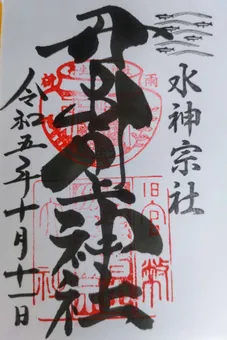 水神宗社
丹生川上神社
令和五年十月十一日